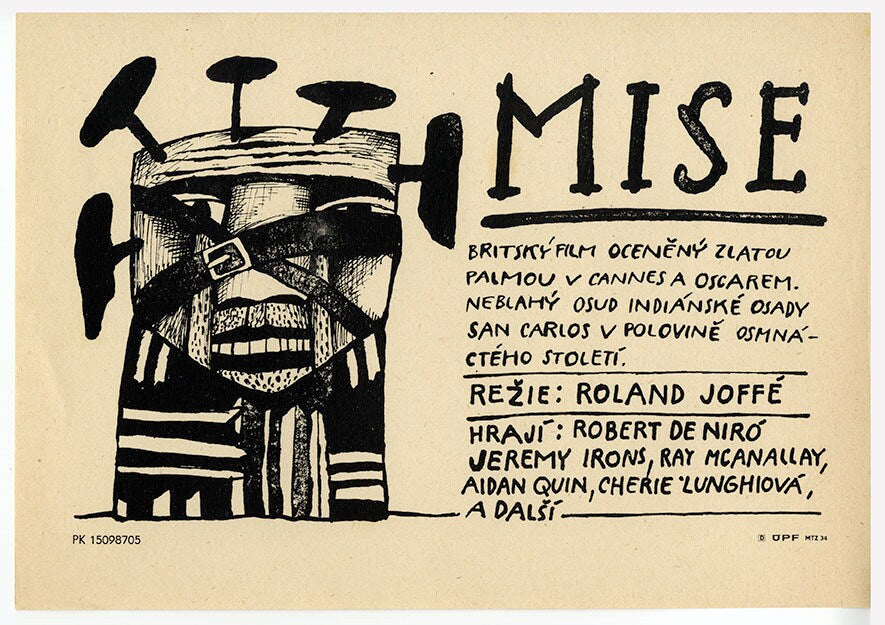 MISE
BRITSKÝ FILM OCENĚNÝ ZLATOU
PALMOU V CANNES A OSCAREM.
NEBLAHÝ OSUD INDIÁNSKÉ OSADY
SAN CARLOS V POLOVINĚ OSMNÁ-
CTÉHO STOLETÍ.
REŽIE: ROLAND JOFFÉ
HRAJÍ: ROBERT DE NIRO
JEREMY IRONS, RAY MCANALLAY,
AIDAN QUIN, CHERIE LUNGHIOVÁ,
A DALŠÍ
PK 15098705
D ÚPF MTZ 36